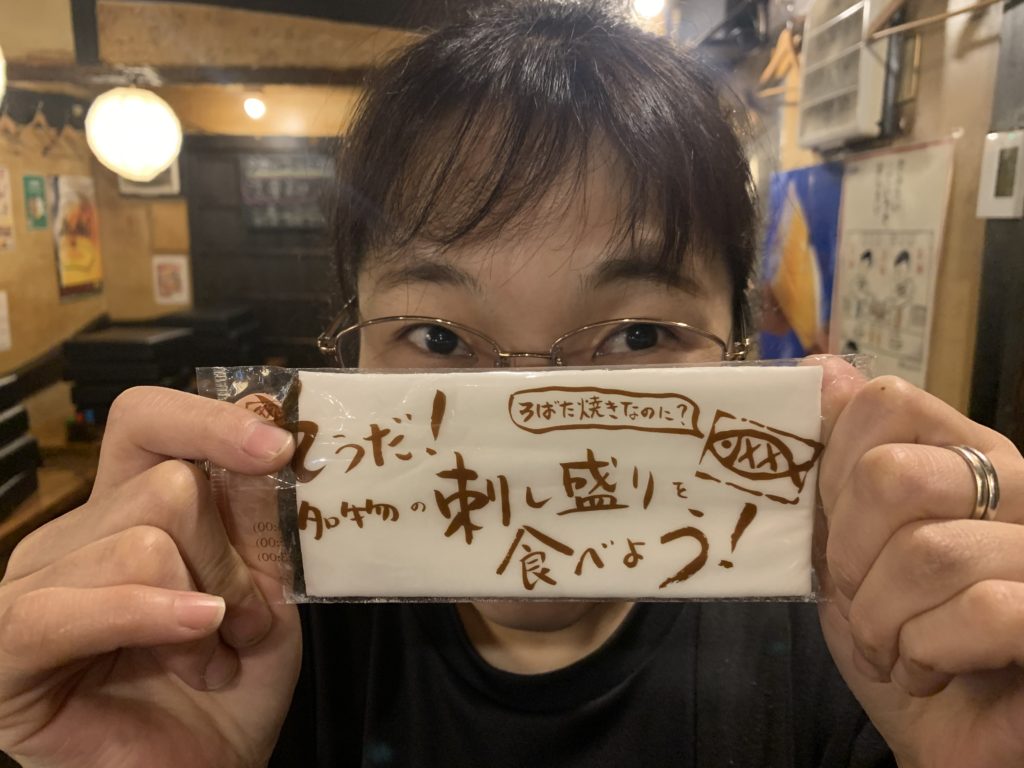 そうだ!
ろばた焼きなのに?
名物の刺し盛りを
食べよう!